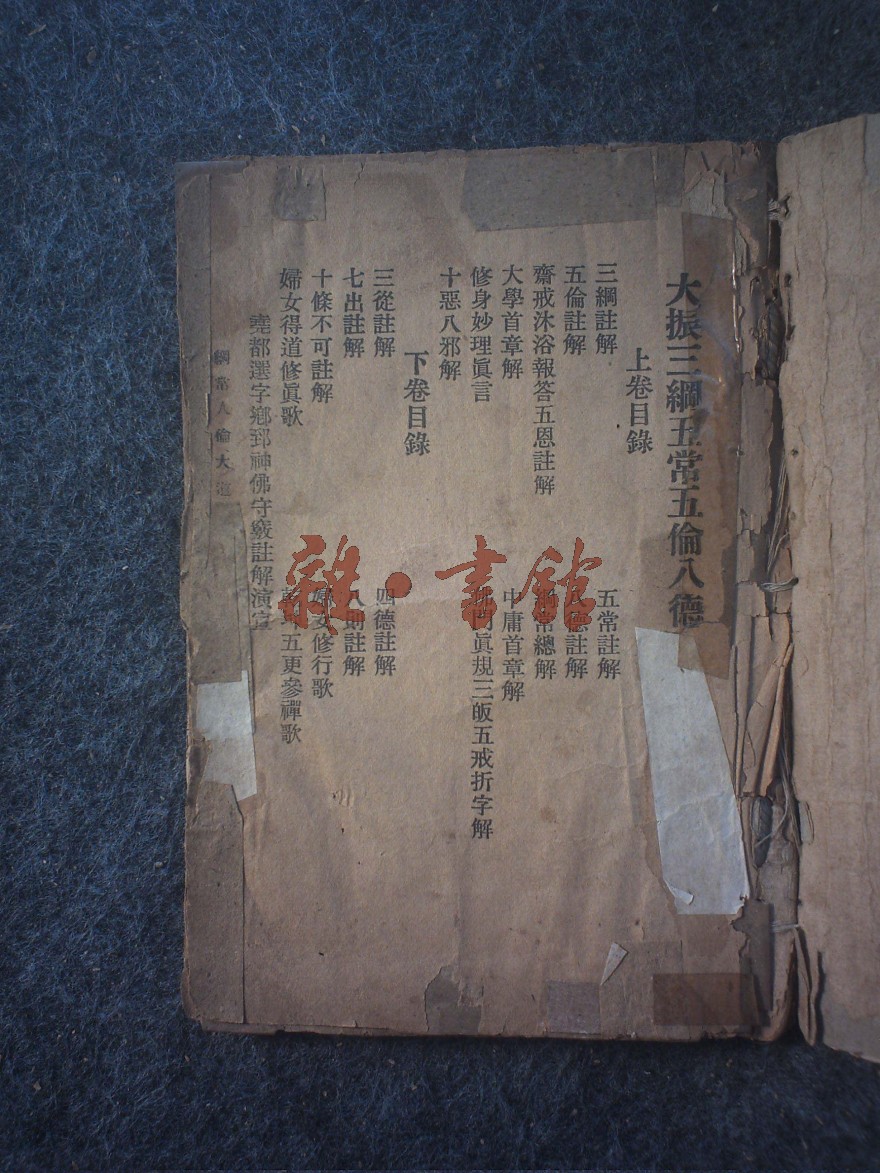 大振三綱五常五倫八德
上卷目錄
三綱註解 五常註解
五倫註解 德註解
齋戒沐浴報答五恩註解 常總解
大學首章解 中庸首章解
修身妙理眞言 眞規三皈五戒折字解
十惡八邪解
下卷目錄
三從註解 四德註解
七出註解 八則註解
十條不可註解 婦女修行歌
婦女得道修眞歌 五更參禪歌
堯都選字鄉郅神佛守竅註解演
綱常人倫大道
雜·書館